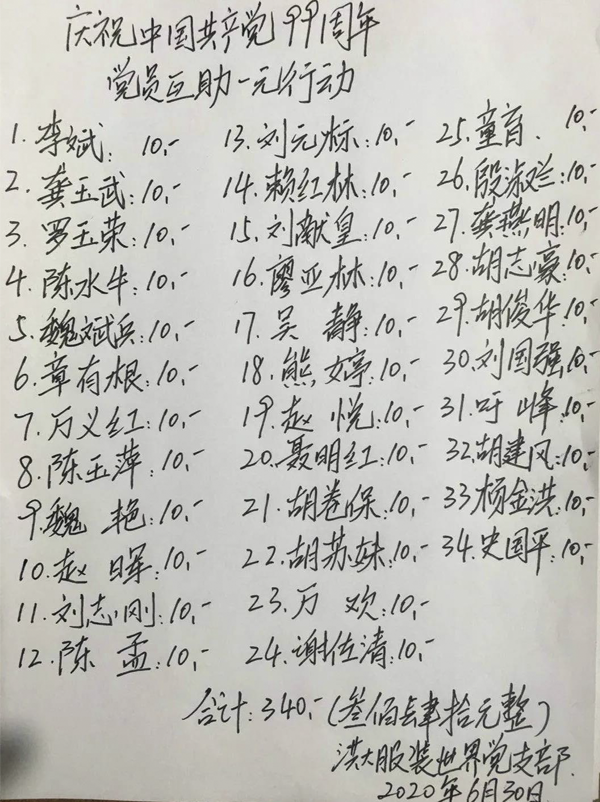 庆祝中国共产党99周年
党员互助一元行动
1. 李斌: 10,-
2. 龚玉武: 10,-
3. 罗玉荣: 10,-
4. 陈水牛: 10,-
5. 魏斌兵: 10,-
6. 章有根: 10,-
7. 万义红: 10,-
8. 陈玉萍: 10,-
9. 魏 艳: 10,-
10. 赵 晖: 10,-
11. 刘志刚: 10,-
12. 陈 孟: 10,-
13. 刘元标: 10,-
14. 赖红林: 10,-
15. 刘献皇: 10,-
16. 廖亚林: 10,-
17. 吴 静: 10,-
18. 熊婷: 10,-
19. 赵 悦: 10,-
20. 聂明红: 10,-
21. 胡卷保: 10,-
22. 胡苏妹: 10,-
23. 万 欢: 10,-
24. 谢佐清: 10,-
25. 童育. 10,-
26. 段淑兰: 10,-
27. 龚燕明: 10,-
28. 胡志豪: 10,-
29. 胡俊华: 10,-
30. 刘国强: 10,-
31. 叶 峰: 10,-
32. 胡建风: 10,-
33. 杨金洪: 10,-
34. 史国平: 10,-
合计: 340,- (叁佰肆拾元整)
洪大服装世界党支部
2020年6月30日